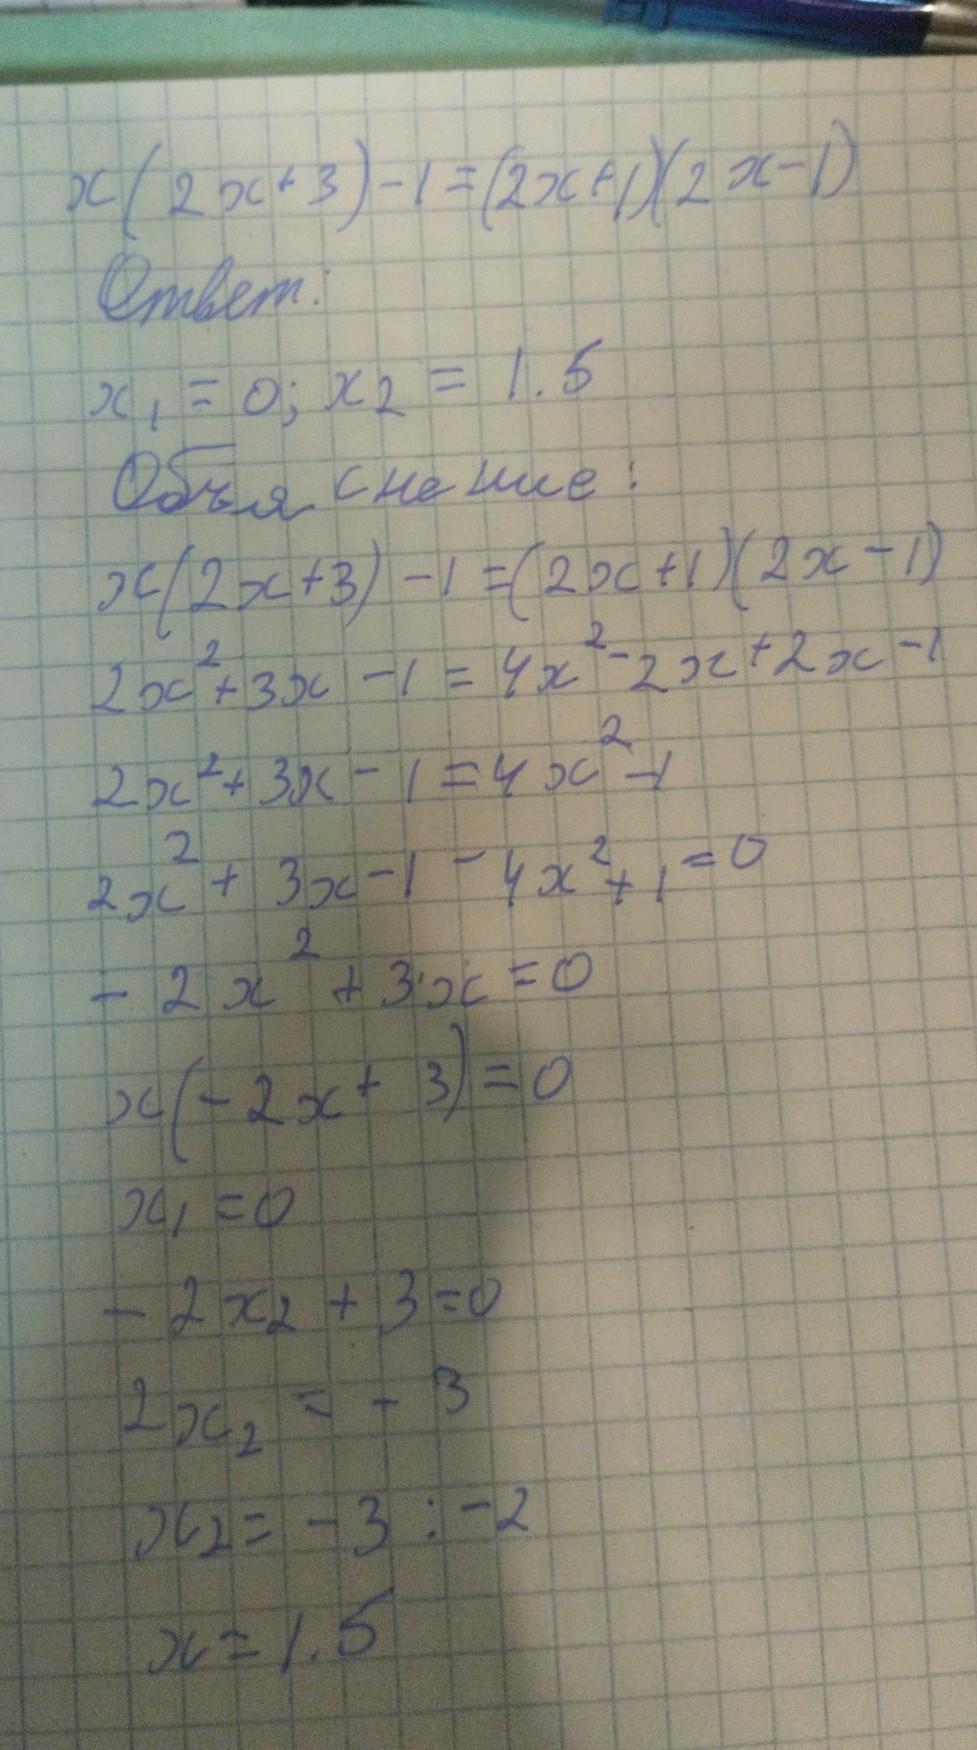 x(2x+3)-1=(2x+1)(2x-1)
Ответ:
x₁=0; x₂=1.5
Объяснение:
x(2x+3)-1=(2x+1)(2x-1)
2x²+3x-1=4x²-2x+2x-1
2x²+3x-1=4x²-1
2x²+3x-1-4x²+1=0
-2x²+3x=0
x(-2x+3)=0
x₁=0
-2x₂+3=0
2x₂=-3
x₂=-3:-2
x=1.5